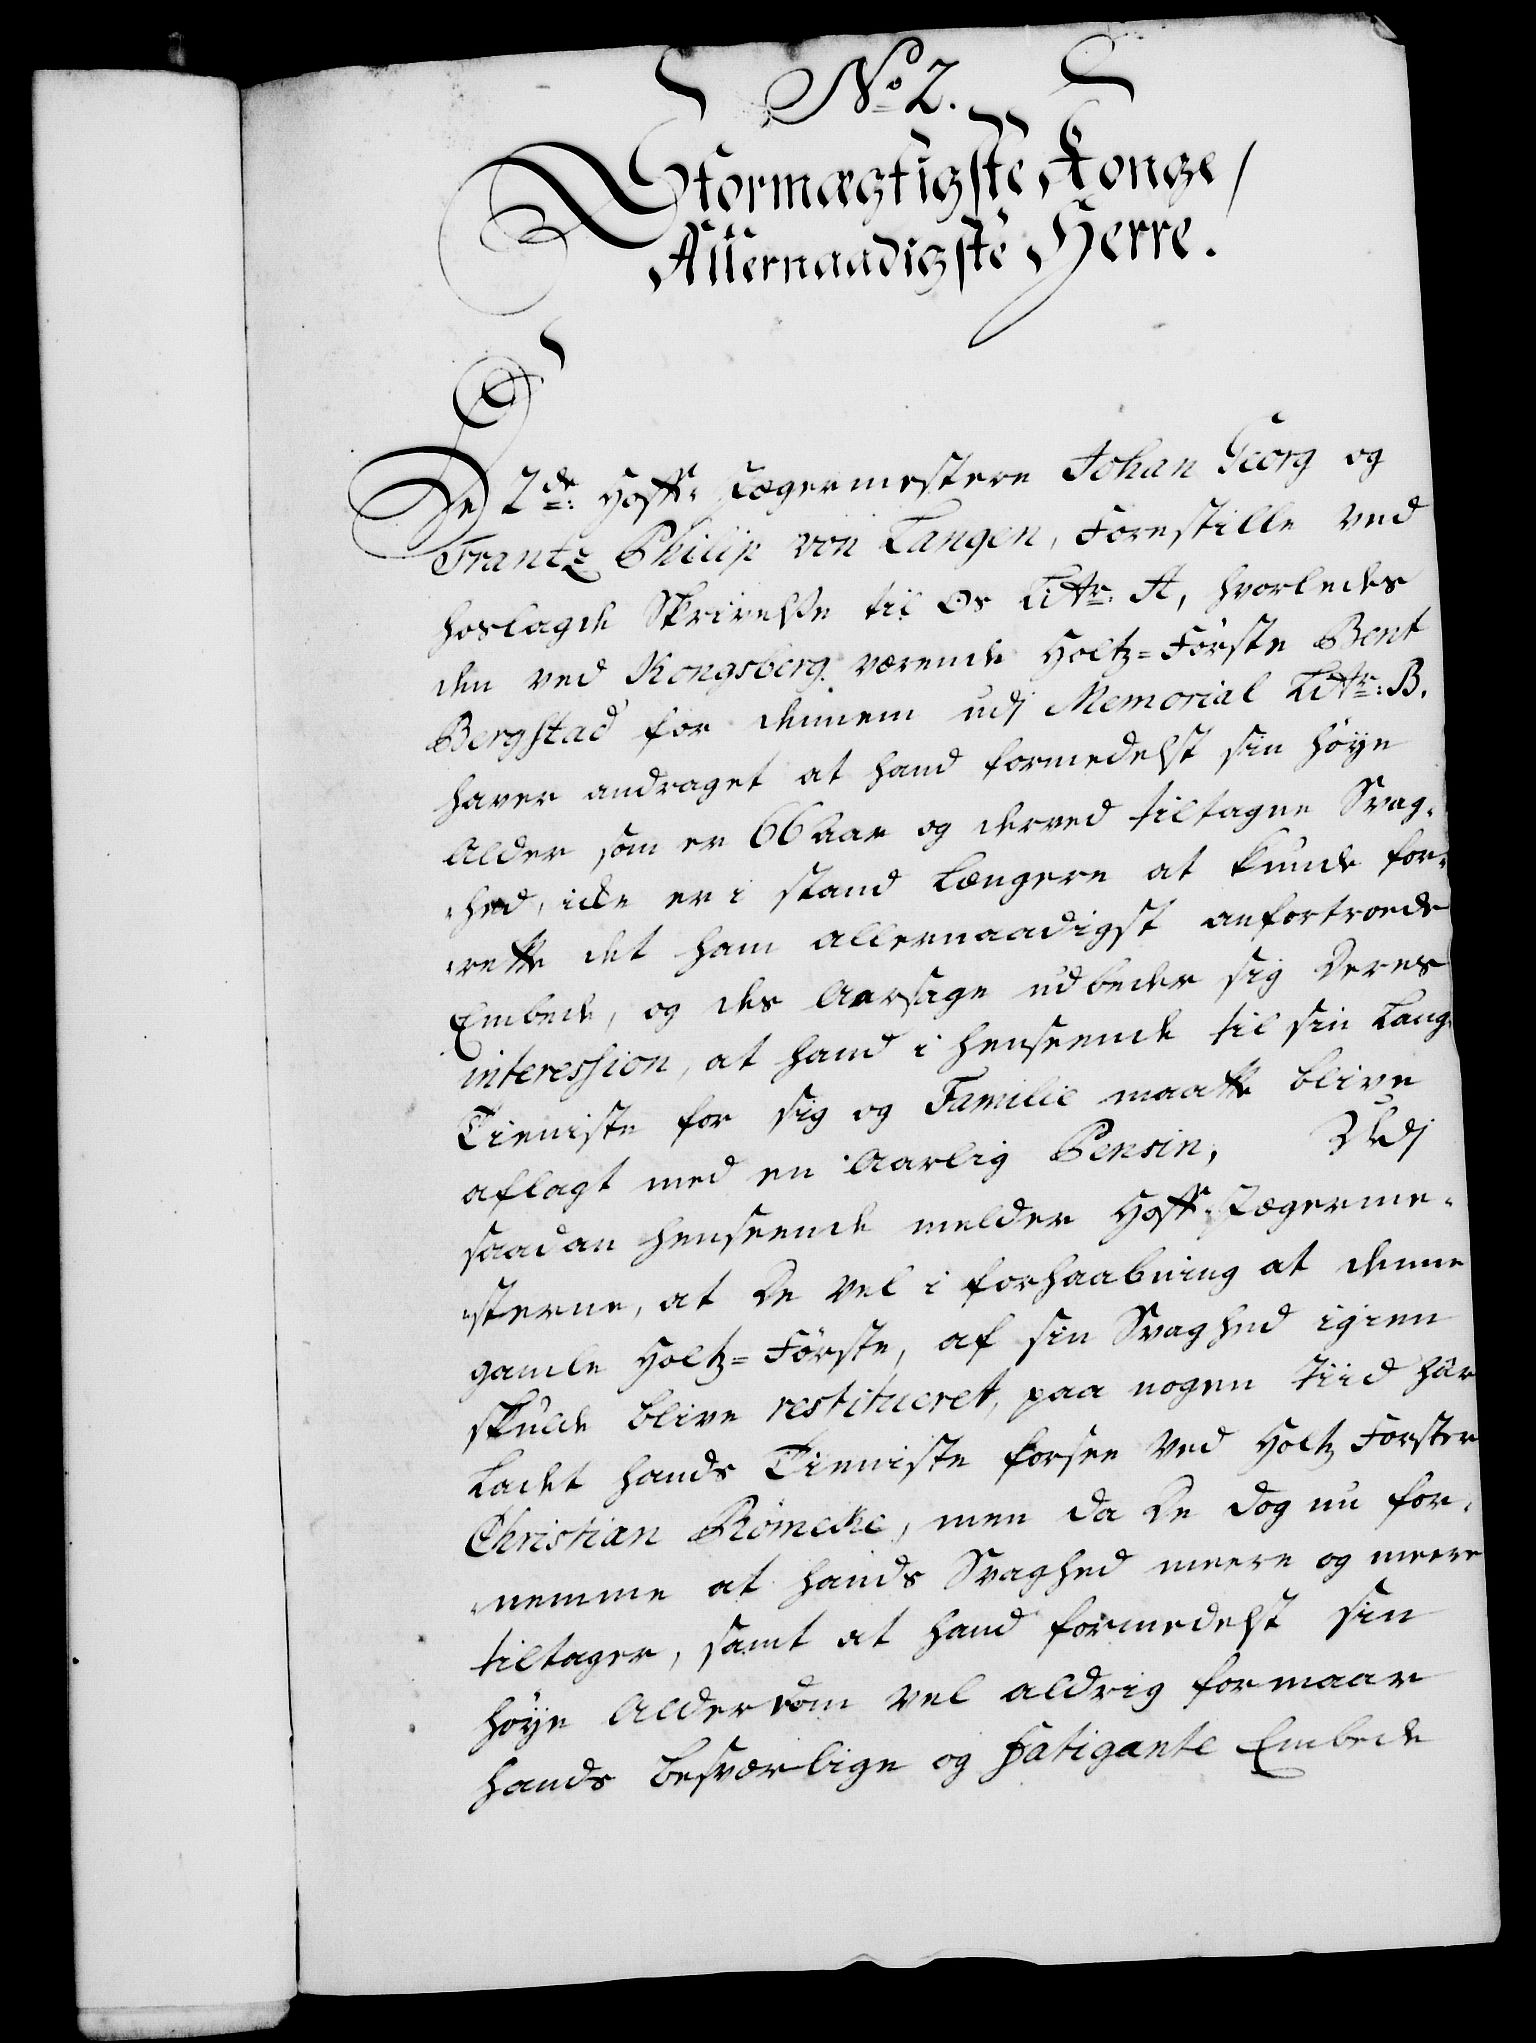 No 2.
Stormægtigste Konge/
Allernaadigste Herre.
De 2de: Hoff: Jægermestere Johan Georg og
Frantz Philip von Langen, Forestille ved
hoslagde Skrivelse til Os Littr: A, hvorledes
den ved Kongsberg værende Holtz=Förste Bent
Bergstad for dennem udj Memorial Littr: B.
haver andraget at hand formedelst sin høye
Alder som er 66 Aar og derved tiltagne Svag-
-hed, icke er i stand længere at kunde for-
-rette det ham allernaadigst anfortroede
Embede, og des Aarsage udbeder sig Deres
interession, at hand i henseende til sin lang
Tieniste for sig og Familie maatte blive
aflagt med en Aarlig Pensin, Udj
saadan henseende melder Hoff-Jægerme-
-sterne, at De vel i forhaabning at denne
gamle Holtz=Förste, af sin Svaghed igien
skulde blive restitueret, paa nogen tiid har
ladet hands Tieniste forsee ved Holtz Forster
Christian Römcke, men da De dog nu for-
-nemme at hands Svaghed meere og meere
tiltager, samt at hand formedelst sin
høye Alderdom vel aldrig formaar
hands besværlige og fatigante Embede